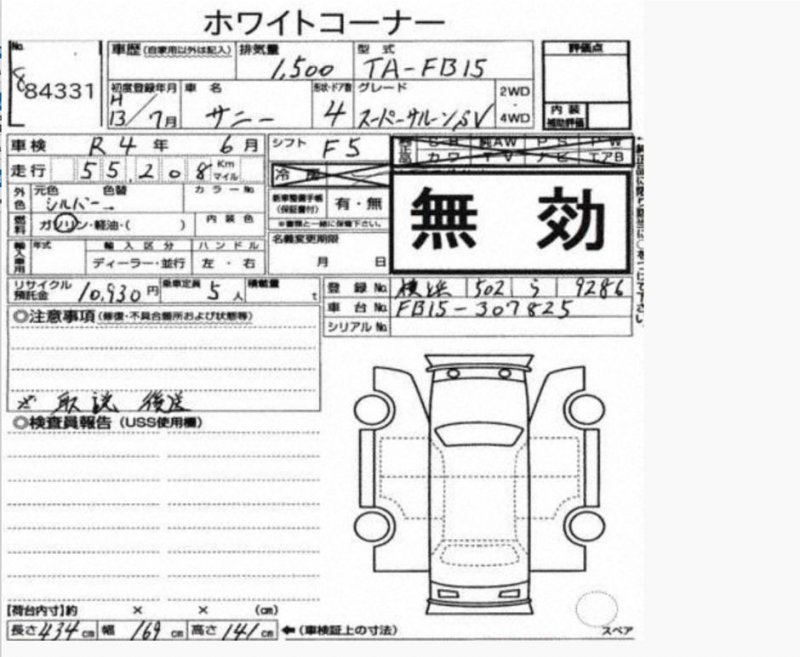 ホワイトコーナー
No. 84331
車歴(自家用以外は記入) 排気量 1,500 型式 TA-FB15 評価点
初度登録年月 H13/7月 車名 サニー 形状・ドア数 4 グレード スーパーサルーンSV 2WD・4WD 内装補助評価
車検 R4年 6月 シフト F5
走行 55,208 Km マイル
外色 元色 シルバー 色替 カラーNo. 新車整備手帳(保証書付) 有・無
※書類と一緒に保管下さい。
燃料 ガソリン・軽油・( ) 内装色 無効
名義変更期限 月 日
輸入車用 年式 輸入区分 ディーラー・並行 ハンドル 左・右
リサイクル預託金 10,930円 乗車定員 5人 積載量 t 登録No. 横浜 502 ら 9286
車台No. FB15-307825
シリアルNo.
◎注意事項(修復・不具合箇所および状態等)
※ 取説 後送
◎検査員報告(USS使用欄)
【荷台内寸】約 × × (cm)
長さ434cm 幅169cm 高さ141cm ←(車検証上の寸法) スペア